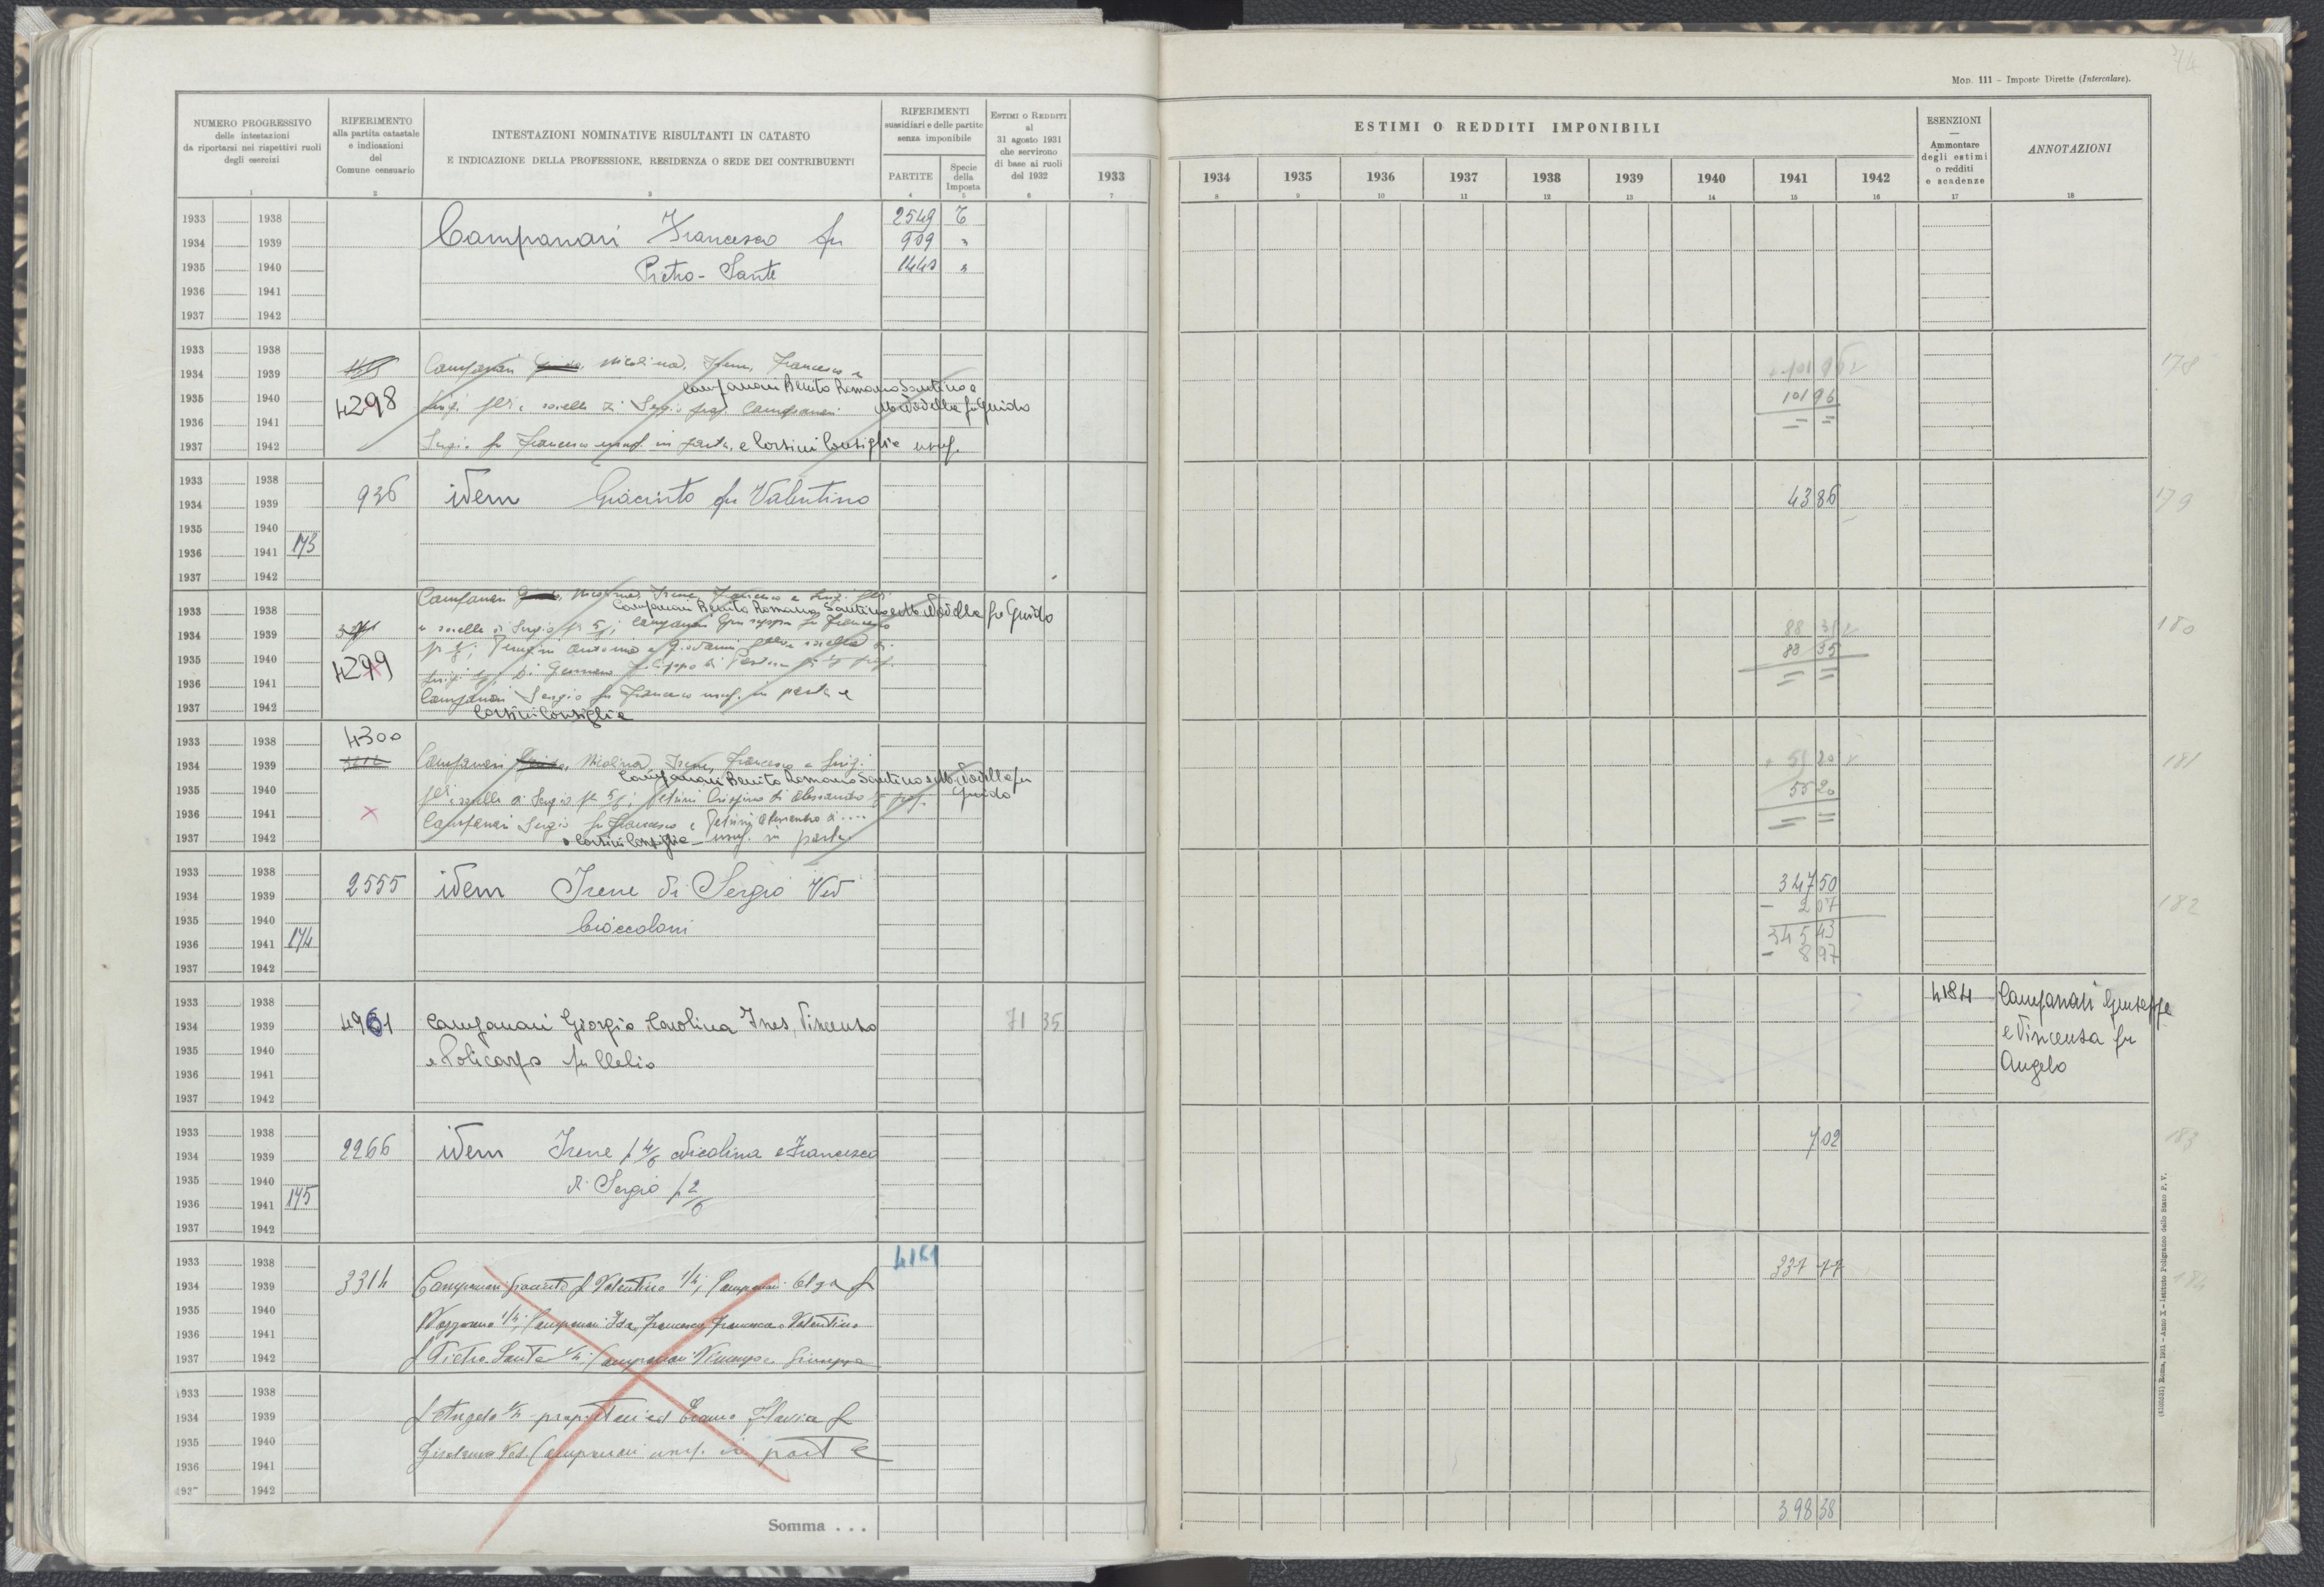 74
Mod. 111 - Imposte Dirette (Intercalare).
NUMERO PROGRESSIVO
delle intestazioni
da riportarsi nei rispettivi ruoli
degli esercizi
1
RIFERIMENTO
alla partita catastale
e indicazioni
del
Comune censuario
2
INTESTAZIONI NOMINATIVE RISULTANTI IN CATASTO
E INDICAZIONE DELLA PROFESSIONE, RESIDENZA O SEDE DEI CONTRIBUENTI
3
RIFERIMENTI
sussidiari e delle partite
senza imponibile
PARTITE
4
Specie
della
Imposta
5
ESTIMI O REDDITI
al
31 agosto 1931
che servirono
di base ai ruoli
del 1932
6
ESTIMI O REDDITI IMPONIBILI
1933 1934 1935 1936 1937 1938 1939 1940 1941 1942
7 8 9 10 11 12 13 14 15 16
ESENZIONI
Ammontare
degli estimi
o redditi
e scadenze
17
ANNOTAZIONI
18
1933 1938 2549
1934 1939 Campanari Francesco fu 909 "
1935 1940 Pietro-Sante "
1936 1941
1937 1942
1933 1938
1934 1939 Campanari Nicolina, Irene, Francesco e 178
Campanari Benito Romano Santino e
1935 1940 4298 Luigi flli e sorelle di Sergio prop. Campanari fu Guido 101 96
1936 1941
1937 1942 Sergio fu Francesco usuf. in parte, e Corsini Consiglia usuf.
1933 1938
1934 1939 936 idem Giacinto fu Valentino 43 86 179
1935 1940
1936 1941 173
1937 1942
Campanari Nicolina, Irene, Francesco e Luigi flli
1933 1938 Campanari Benito Romano Santino fu Guido
1934 1939 e sorelle di Sergio 88 35 180
1935 1940 4299 88 35
1936 1941
1937 1942 Campanari Sergio fu Francesco usuf. in parte e
Corsini Consiglia
1933 1938 4300
1934 1939 Campanari Nicolina, Irene, Francesco e Luigi 55 20 181
Campanari Benito Romano Santino fu
1935 1940 flli e sorelle di Sergio Alessandro Guido 55 20
1936 1941 Campanari Sergio fu Francesco e Alessandro di ....
1937 1942 e Corsini Consiglia usuf. in parte
1933 1938 2555 idem Irene di Sergio Ved 347 50
1934 1939 Cioccoloni - 2 07 182
1935 1940 345 43
1936 1941 174 - 8 97
1937 1942
1933 1938 4184 Campanari Giuseppe
1934 1939 4961 Campanari Giorgio, Carolina Ines, Vincenzo 71 35 e Vincenza fu
1935 1940 e Policarpo fu Clelio Angelo
1936 1941
1937 1942
1933 1938 2266 idem Irene p 4/6 Nicolina e Francesco 7 02 183
1934 1939 di Sergio p 2/6
1935 1940
1936 1941 175
1937 1942
1933 1938 4161
1934 1939 3314 Campanari Giacinto f Valentino 1/4; Campanari Olga f 337 77 184
1935 1940 1/4; Campanari Ida, Francesco, Francesca e Valentino
1936 1941
1937 1942 f Pietro Sante 1/4; Campanari Vincenzo e Giuseppe
1933 1938
1934 1939 f Angelo 1/4 proprietari ed Flavia f
1935 1940 Girolamo Ved. Campanari usuf. in parte
1936 1941
1937 1942
Somma . . . 398 38
(4103531) Roma, 1931 - Anno X - Istituto Poligrafico dello Stato P. V.